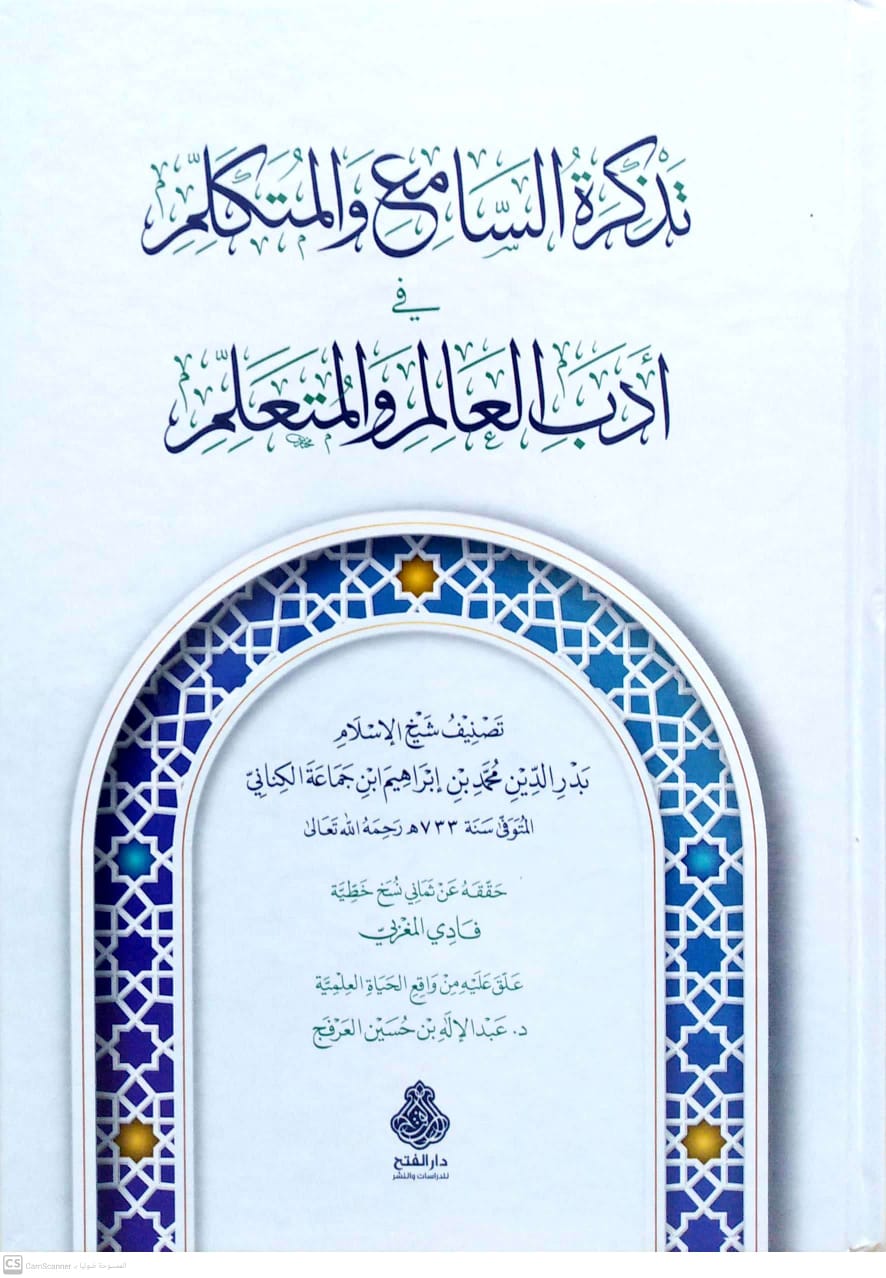 تَذْكِرَةُ السَّامِعِ وَالمُتَكَلِّمِ
فِي
أَدَبِ العَالِمِ وَالمُتَعَلِّمِ
تَصْنِيفُ شَيْخِ الإِسْلَامِ
بَدْرِ الدِّيْنِ مُحَمَّدِ بْنِ إبْرَاهِيمَ ابْنِ جَمَاعَةَ الكِنَانِيِّ
المُتَوَفَّى سَنَة ٧٣٣هـ رَحِمَهُ اللهُ تَعَالَى
حَقَّقَهُ عَنْ ثَمَانِي نُسَخٍ خَطِّيَّة
فَادِي المَغْرِبِيّ
عَلَّقَ عَلَيْهِ مِنْ وَاقِعِ الحَيَاةِ العِلْمِيَّة
د. عَبْدالإِلَهِ بْن حُسَيْن العَرْفَج
دار الفتح
للدراسات والنشر
CS CamScanner الممسوحة ضوئيا بـ